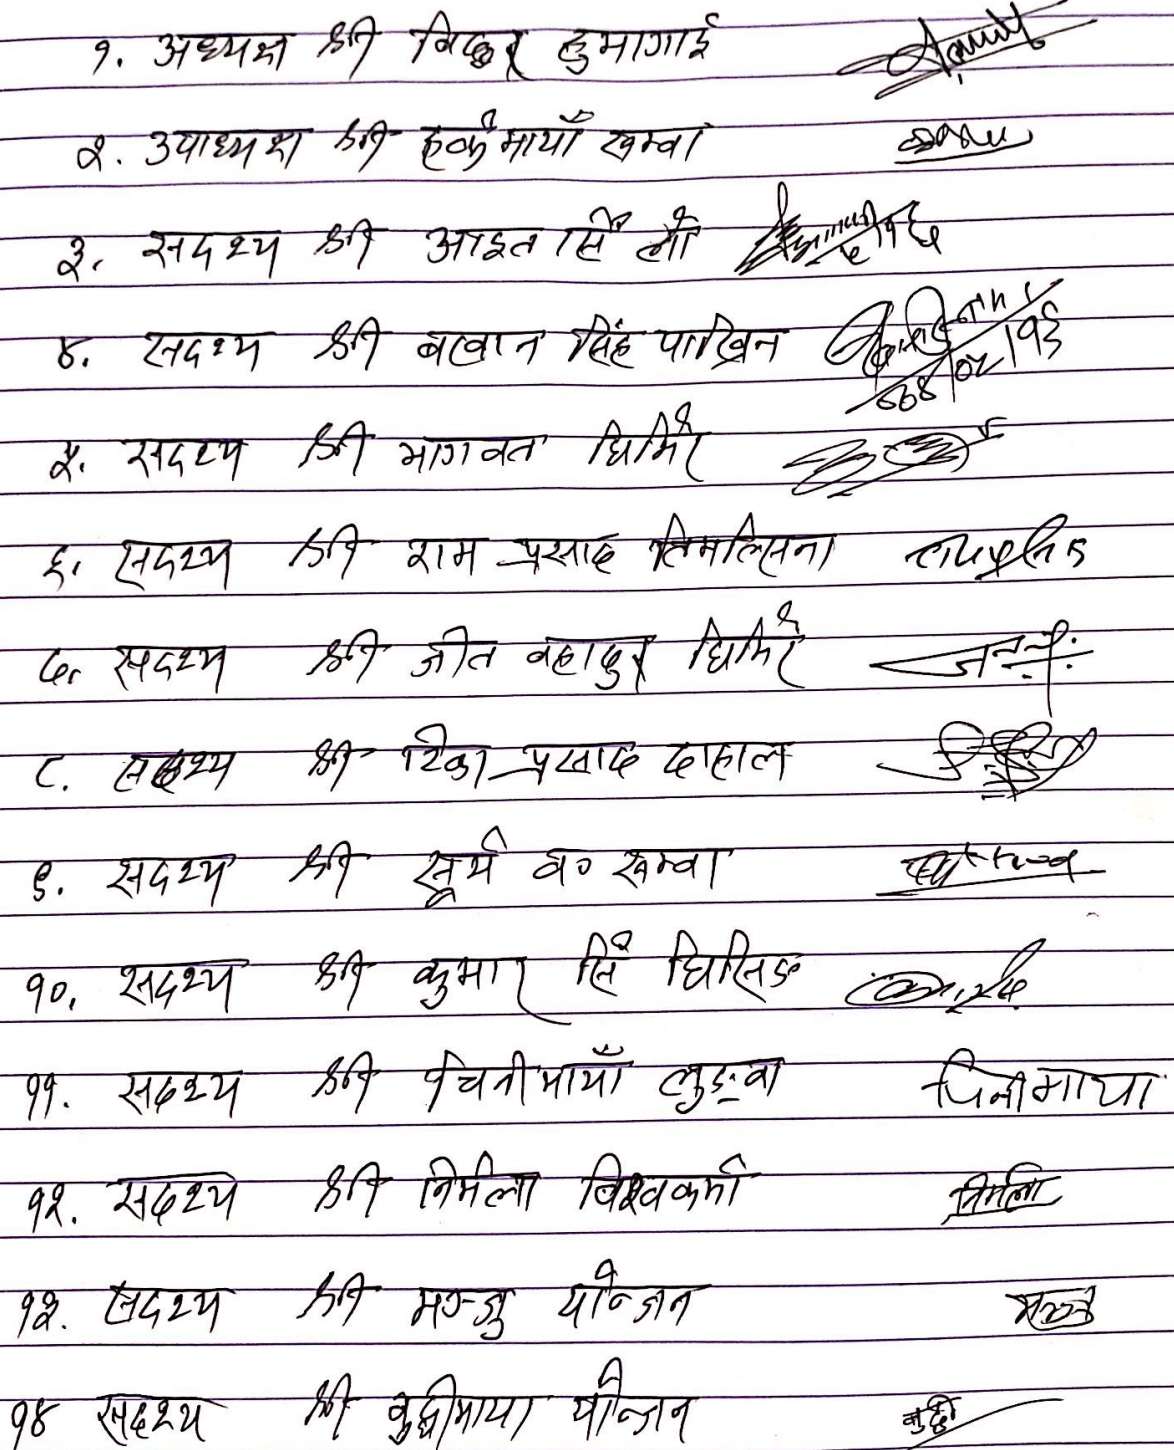 १. अध्यक्ष श्री विदुर हुमागाई
२. उपाध्यक्ष श्री हर्कमायाँ खम्वा
३. सदश्य श्री आइत सिं लो
४. सदश्य श्री बखान सिंह पाख्रिन
५. सदश्य श्री भागवत घिमिरे
६. सदश्य श्री राम प्रसाद तिमल्सिना
७. सदश्य श्री जीत वहादुर घिमिरे
८. सदश्य श्री टिका प्रसाद दाहाल
९. सदश्य श्री सूर्य व० खम्वा
१०. सदश्य श्री कुमार सिं घिसिङ
११. सदश्य श्री चिनीमायाँ लुङ्वा चिनीमाया
१२. सदश्य श्री निर्मला विश्वकर्मा निर्मला
१३. सदश्य श्री मञ्जु योन्जन
१४ सदश्य श्री वुद्धीमाया योन्जन वुद्धी